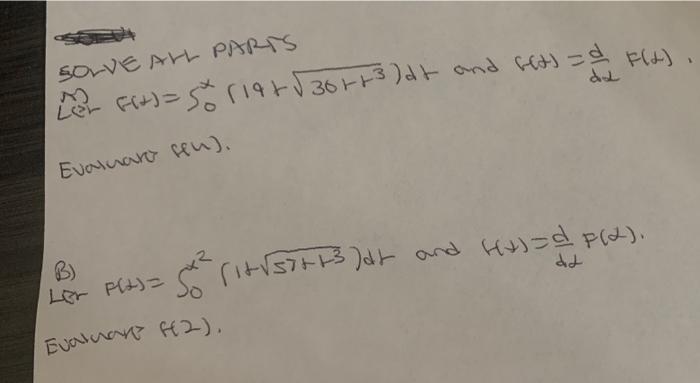 SOLVE ALL PARTS
A)
Let F(x) = ∫₀ˣ (19 + √36 + t³) dt and f(x) = d/dx F(x).
Evaluate f(4).
B)
Let F(x) = ∫₀^x² (1 + √57 + t³) dt and f(x) = d/dx F(x).
Evaluate f(2).